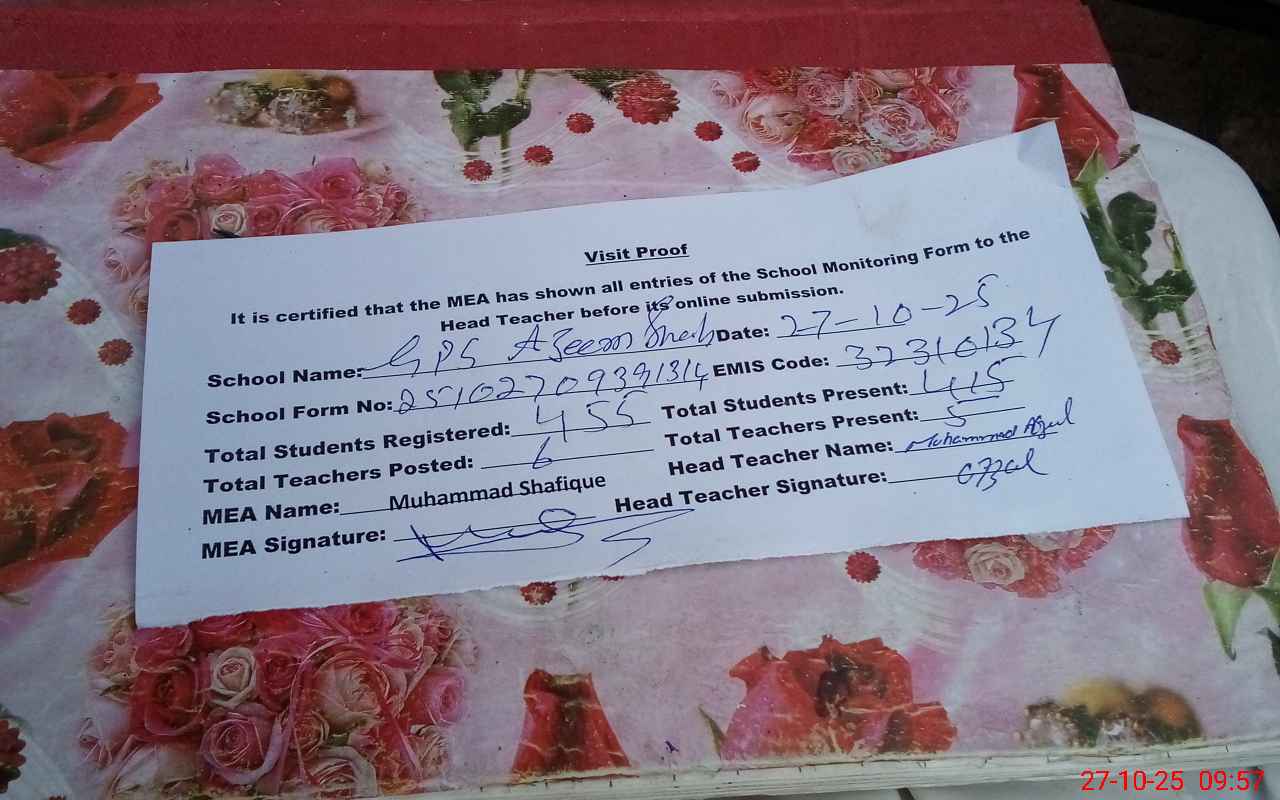 Visit Proof
It is certified that the MEA has shown all entries of the School Monitoring Form to the
Head Teacher before its online submission.
School Name: GPS Azeem Shah Date: 27-10-25
School Form No: EMIS Code: 32310134
Total Students Registered: 455 Total Students Present: 415
Total Teachers Posted: 6 Total Teachers Present: 5
MEA Name: Muhammad Shafique Head Teacher Name: Muhammad Afzal
MEA Signature: Head Teacher Signature: afzal
27-10-25 09:57